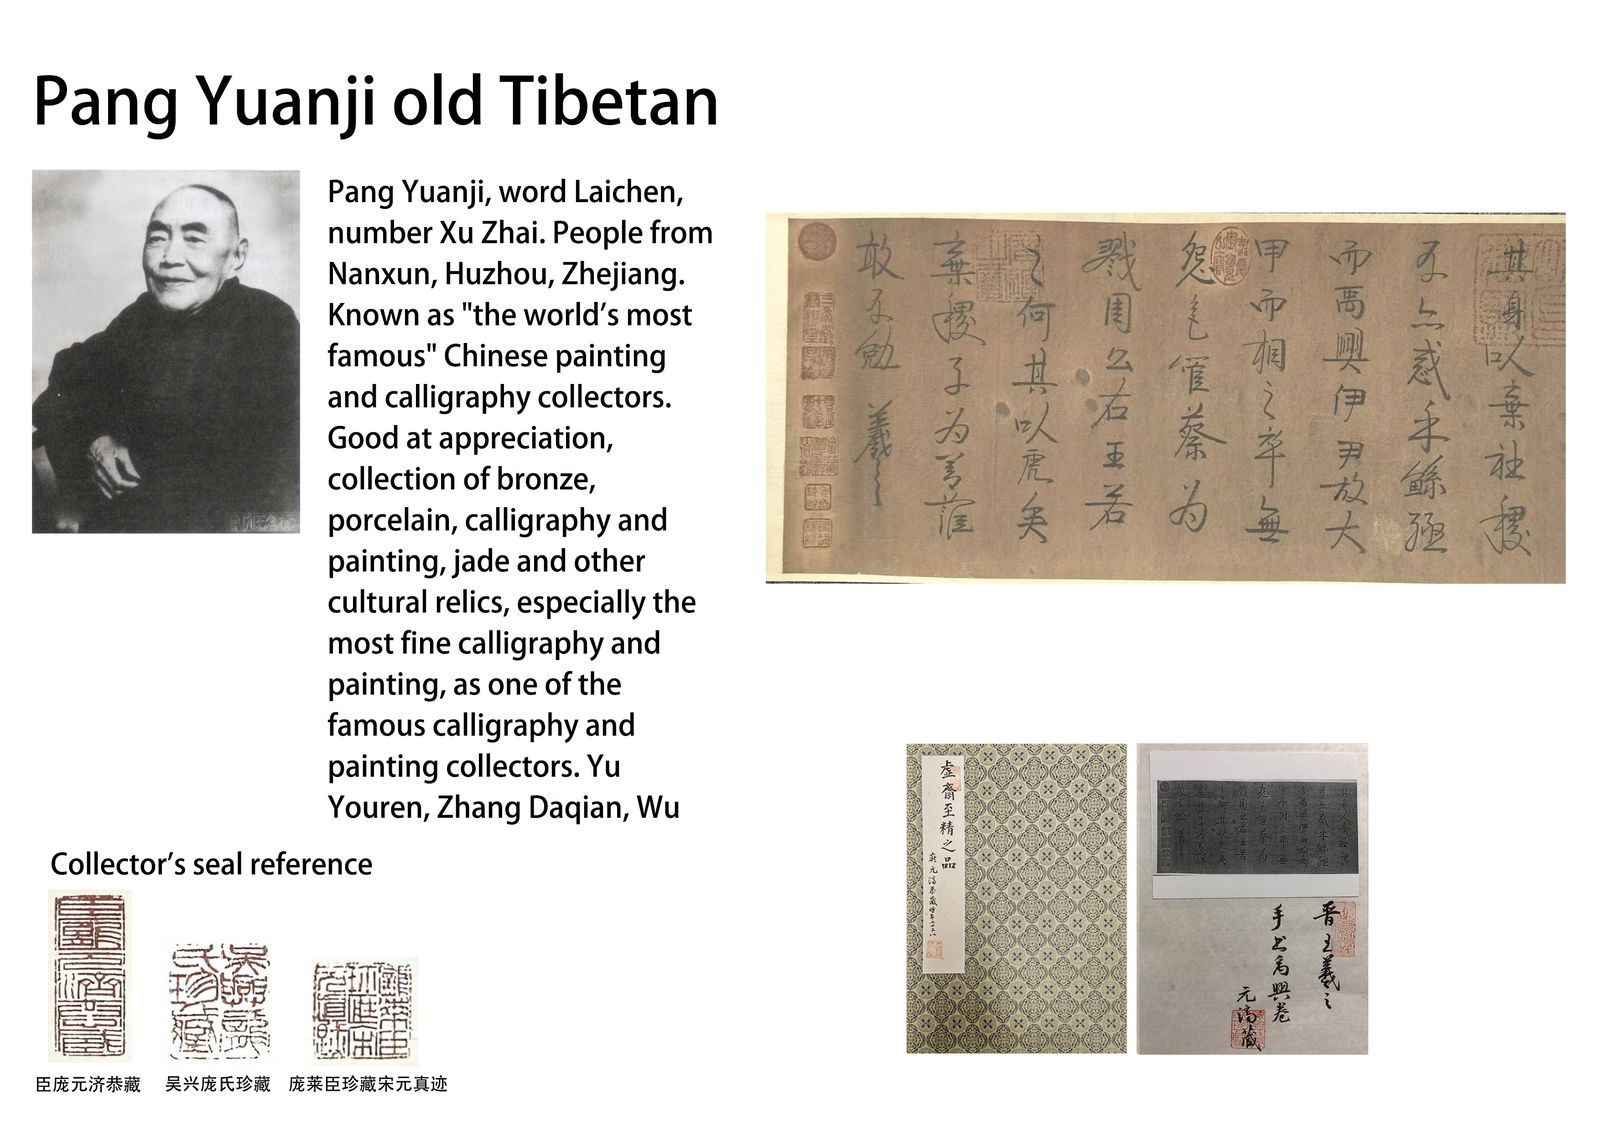 Pang Yuanji old Tibetan
Pang Yuanji, word Laichen,
number Xu Zhai. People from
Nanxun, Huzhou, Zhejiang.
Known as "the world’s most
famous" Chinese painting
and calligraphy collectors.
Good at appreciation,
collection of bronze,
porcelain, calligraphy and
painting, jade and other
cultural relics, especially the
most fine calligraphy and
painting, as one of the
famous calligraphy and
painting collectors. Yu
Youren, Zhang Daqian, Wu
其身以棄社稷
不亦惑乎鯀殛
而禹興伊尹放大
甲而相之卒無
怨色管蔡為
戮周公右王若
之何其以虎矣
棄稷子为善
敢不勉 羲之
虚齋至精之品
晋王羲之
手书禹興卷
元濟藏
Collector’s seal reference
臣庞元济恭藏
吴兴庞氏珍藏
庞莱臣珍藏宋元真迹